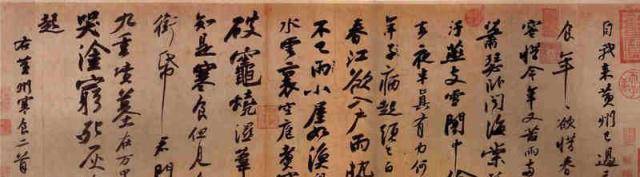 自我來黃州已過三
食年〻欲惜春
容惜今年又苦雨兩
蕭瑟臥聞海棠
汙燕支雪闇中偷
去夜半真有力何
年子病起頭已白
春江欲入戶雨勢
不已雨小屋如漁
水雲裏空庖煮寒
破竈燒濕葦
知是寒食但見
銜帋君門
九重墳墓在万
哭塗窮死灰
起
右黃州寒食二首